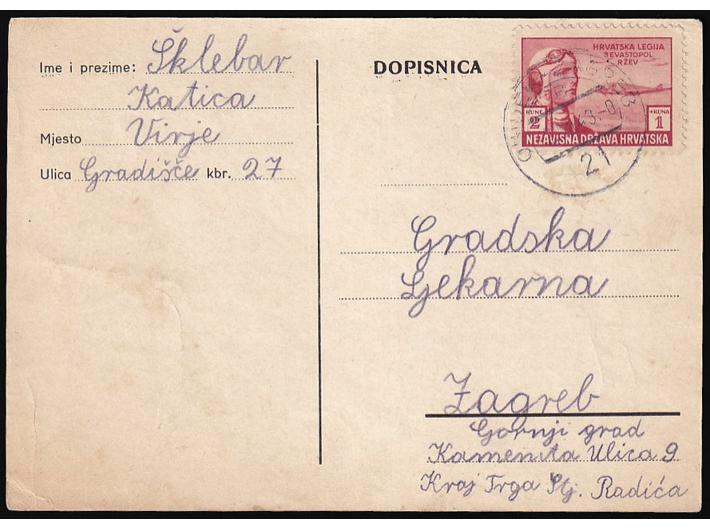 Ime i prezime: Šklebar
Katica
Mjesto Virje
Ulica Gradišće kbr. 27
DOPISNICA
HRVATSKA LEGIJA
SEVASTOPOL
RŽEV
KUNE 2
+KUNA 1
NEZAVISNA DRŽAVA HRVATSKA
21
Gradska
Ljekarna
Zagreb
Gornji grad
Kamenita Ulica 9
Kraj Trga Stj. Radića